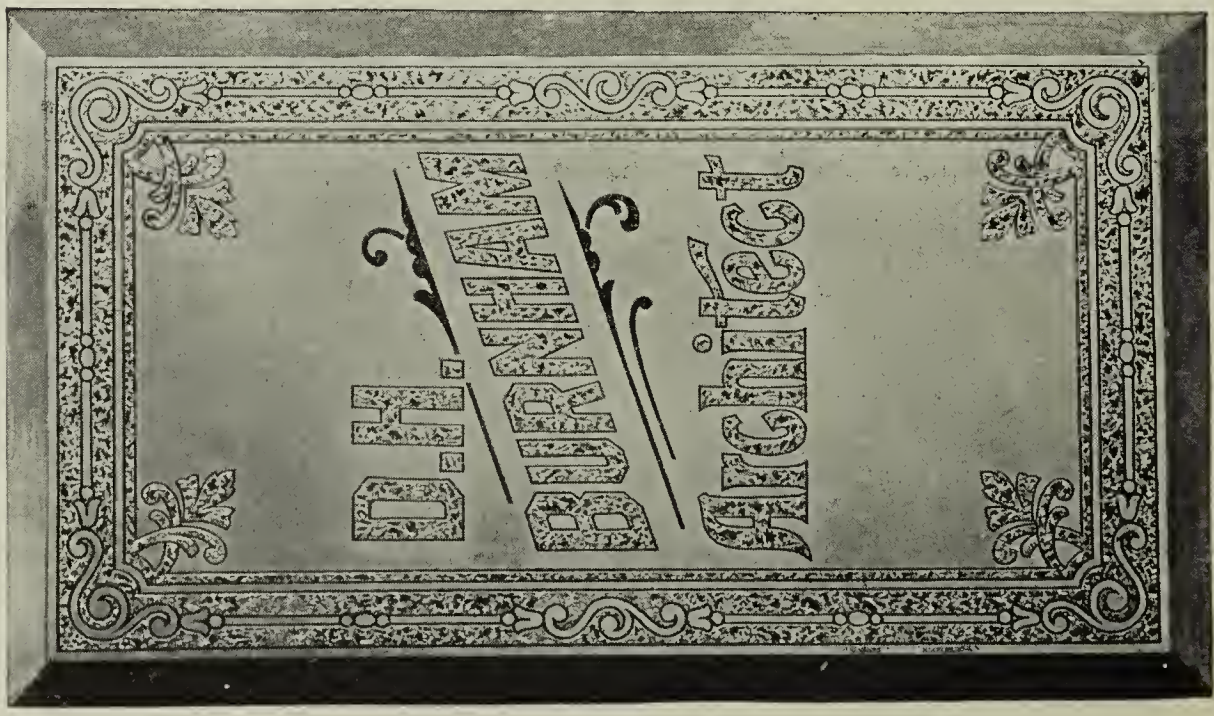 D.H.
BURNHAM
Architect